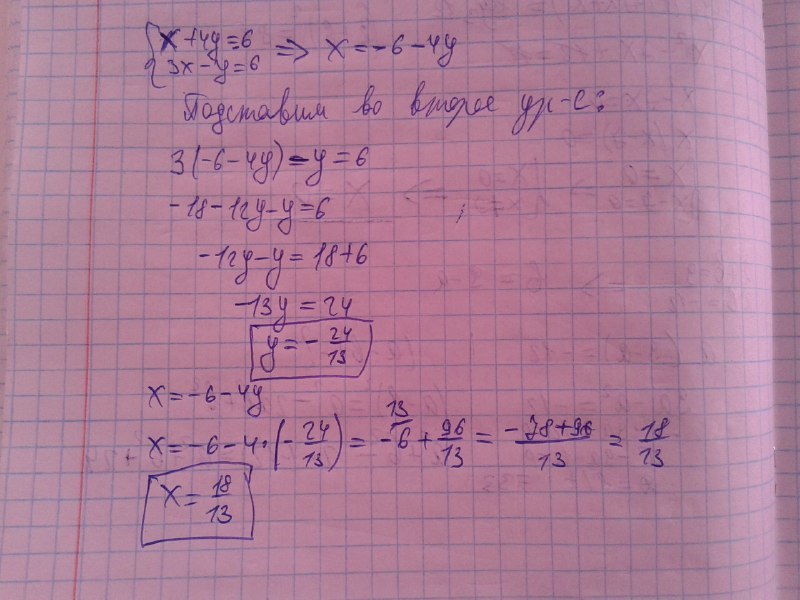 {x+4y=6
3x-y=6 => x=-6-4y
Подставим во второе ур-е:
3(-6-4y)-y=6
-18-12y-y=6
-12y-y=18+6
-13y=24
y=-24/13
x=-6-4y
x=-6-4·(-24/13)=-6+96/13=(-78+96)/13=18/13
x=18/13